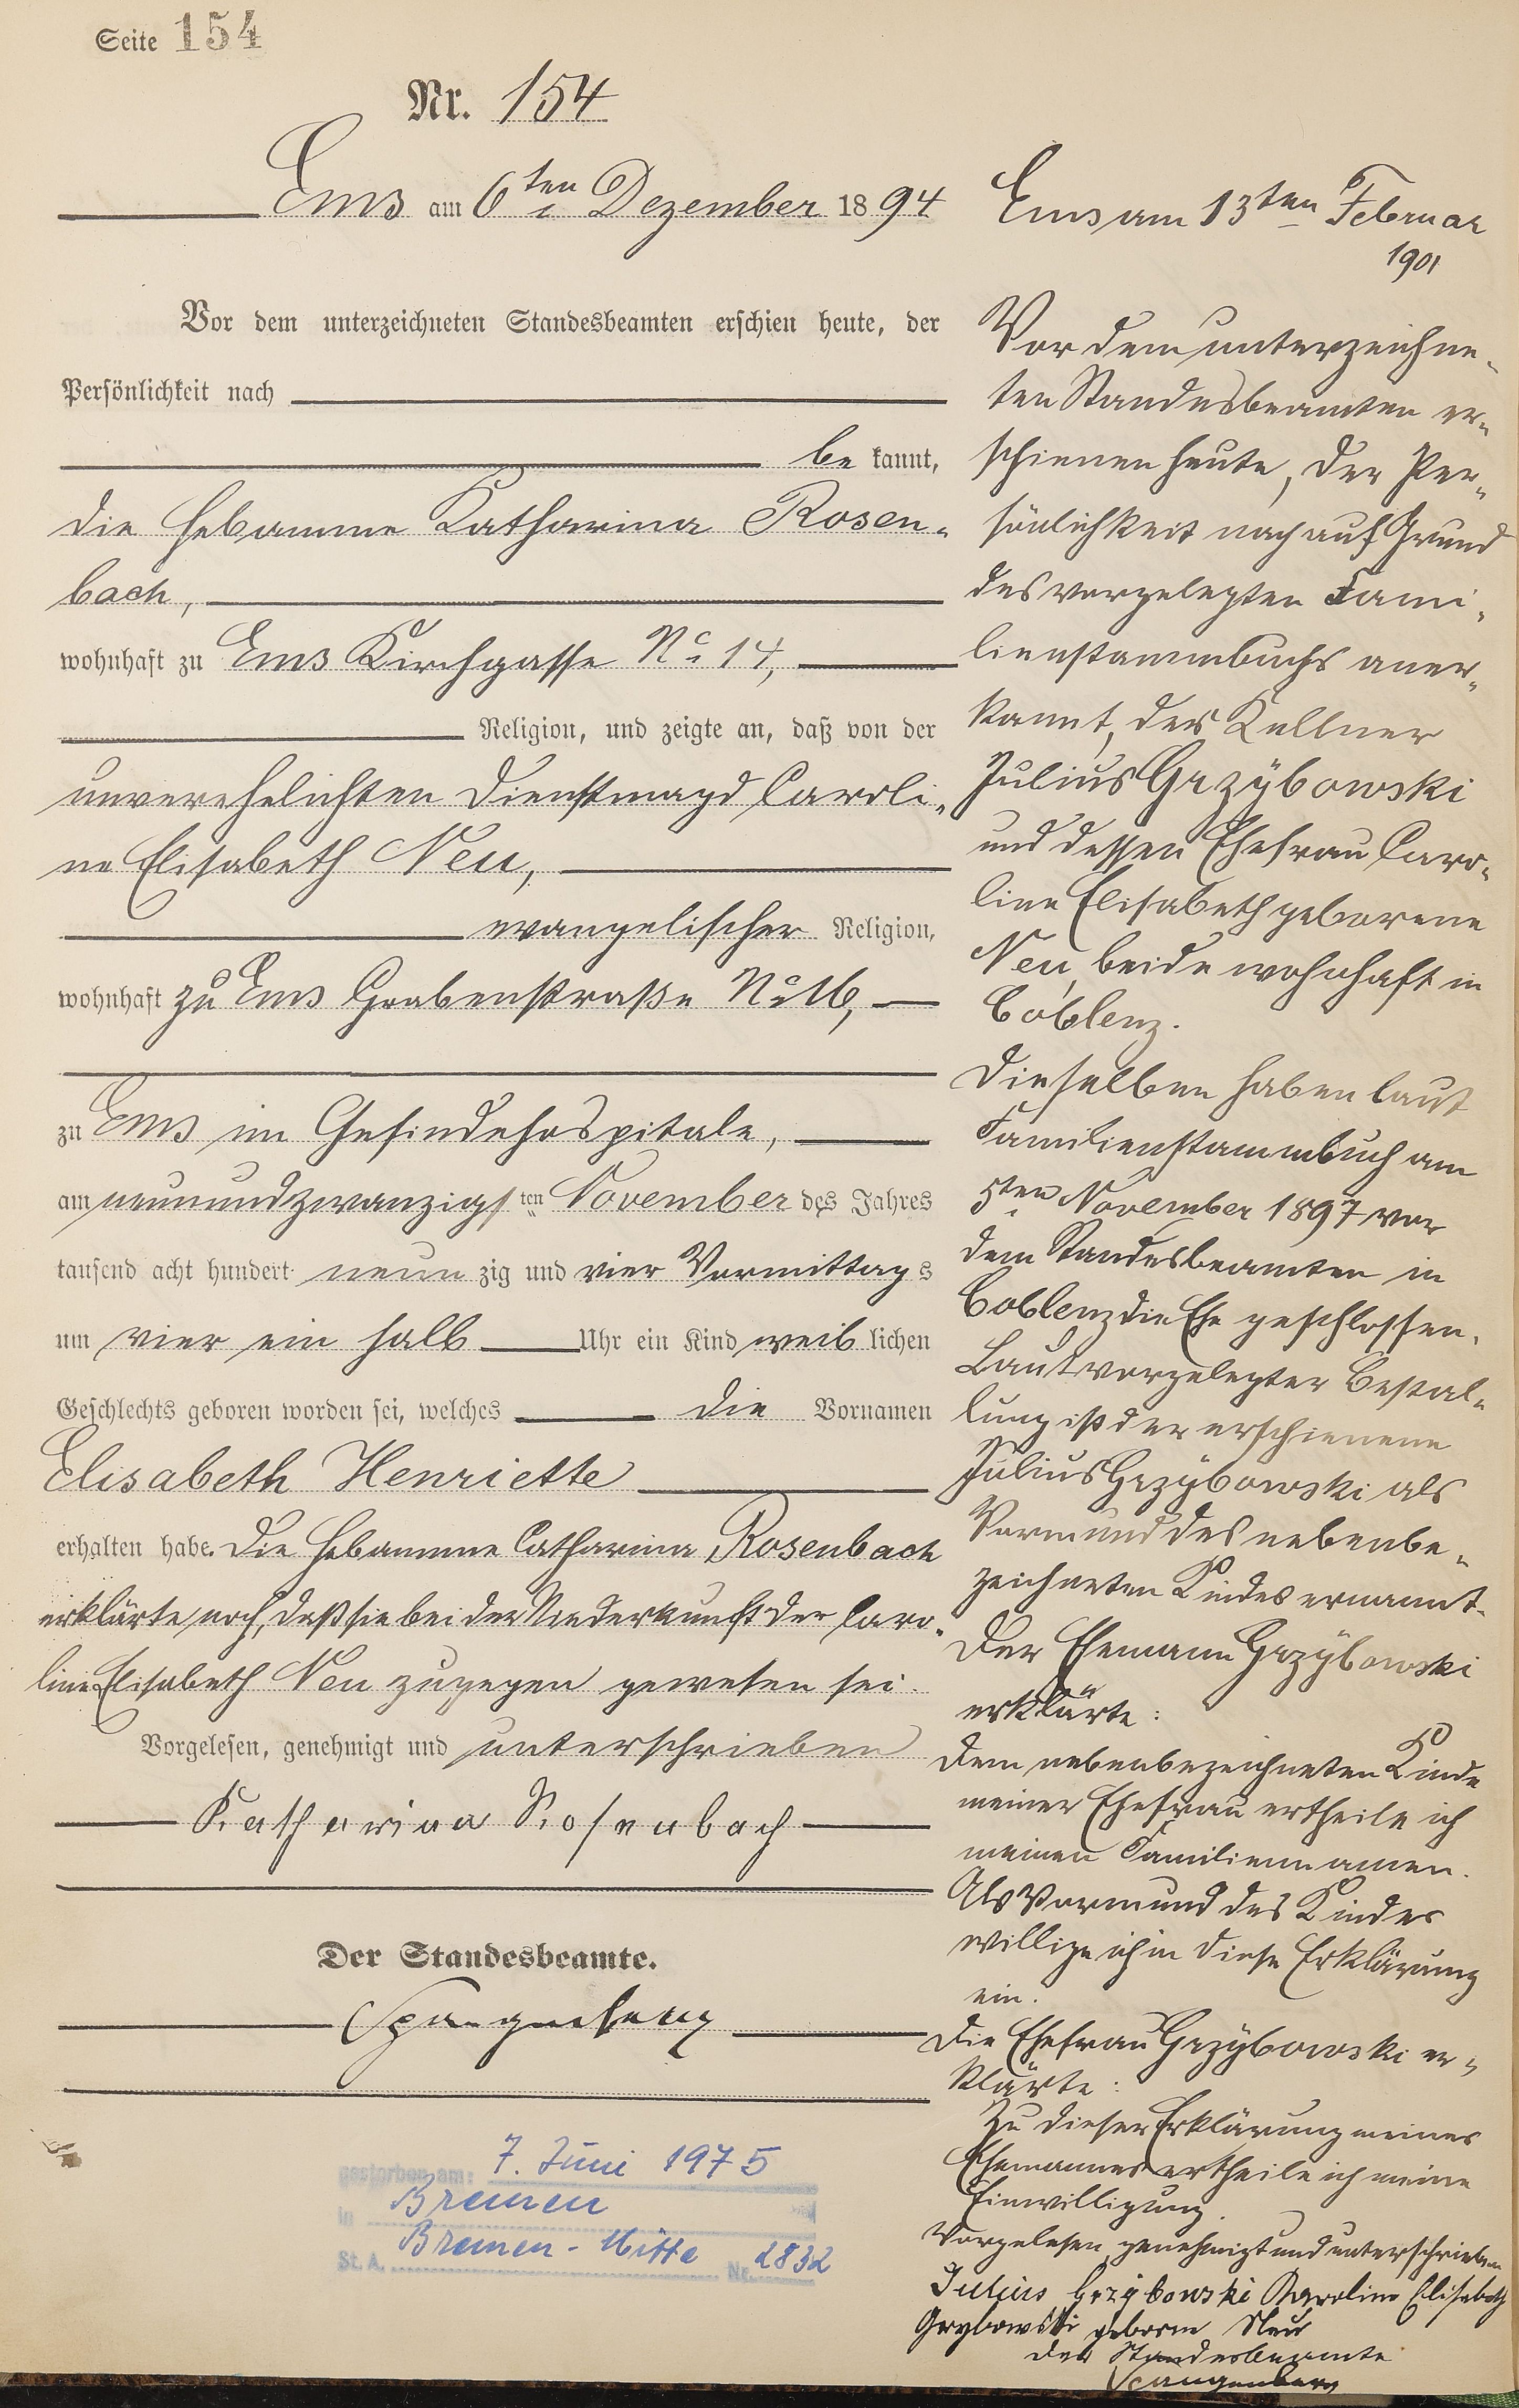 Seite 154
Nr. 154
Ems am 6ten Dezember 1894
Vor dem unterzeichneten Standesbeamten erschien heute, der
Persönlichkeit nach
be kannt,
die Hebamme Katharina Rosen-
bach,
wohnhaft zu Ems Kirchgasse No 14,
Religion, und zeigte an, daß von der
unverehelichten Dienstmagd Caroli-
ne Elisabeth Neu,
evangelischer Religion,
wohnhaft zu Ems Grabenstraße No 16,
zu Ems im Gesindehospitale,
am neunundzwanzigsten November des Jahres
tausend acht hundert neun zig und vier Vormittags
um vier ein halb Uhr ein Kind weiblichen
Geschlechts geboren worden sei, welches die Vornamen
Elisabeth Henriette
erhalten habe. Die Hebamme Catharina Rosenbach
erklärte noch, daß sie bei der Niederkunft der Caro-
line Elisabeth Neu zugegen gewesen sei.
Vorgelesen, genehmigt und unterschrieben
Katharina Rosenbach
Der Standesbeamte.
Spangenberg
gestorben am: 7. Juni 1975
in Bremen
St. A. Bremen-Mitte Nr. 2832
Ems am 13ten Februar
1901
Vor dem unterzeichne-
ten Standesbeamten er-
schienen heute, der Per-
sönlichkeit nach auf Grund
des vorgelegten Fami-
lienstammbuchs aner-
kannt, der Kellner
Julius Grzÿbowski
und dessen Ehefrau Caro-
line Elisabeth geborene
Neu, beide wohnhaft in
Coblenz.
Dieselben haben laut
Familienstammbuch am
5ten November 1897 vor
dem Standesbeamten in
Coblenz die Ehe geschlossen.
Laut vorgelegter Bestal-
lung ist der erschienene
Julius Grzÿbowski als
Vormund des nebenbe-
zeichneten Kindes ernannt.
Der Ehemann Grzÿbowski
erklärte:
Dem nebenbezeichneten Kinde
meiner Ehefrau ertheile ich
meinen Familiennamen.
Als Vormund des Kindes
willige ich in diese Erklärung
ein.
Die Ehefrau Grzÿbowski er-
klärte:
Zu dieser Erklärung meines
Ehemannes ertheile ich meine
Einwilligung.
Vorgelesen genehmigt und unterschrieben
Julius Grzÿbowski Karoline Elisabeth
Grybowski geboren Neu
Der Standesbeamte
Spangenberg